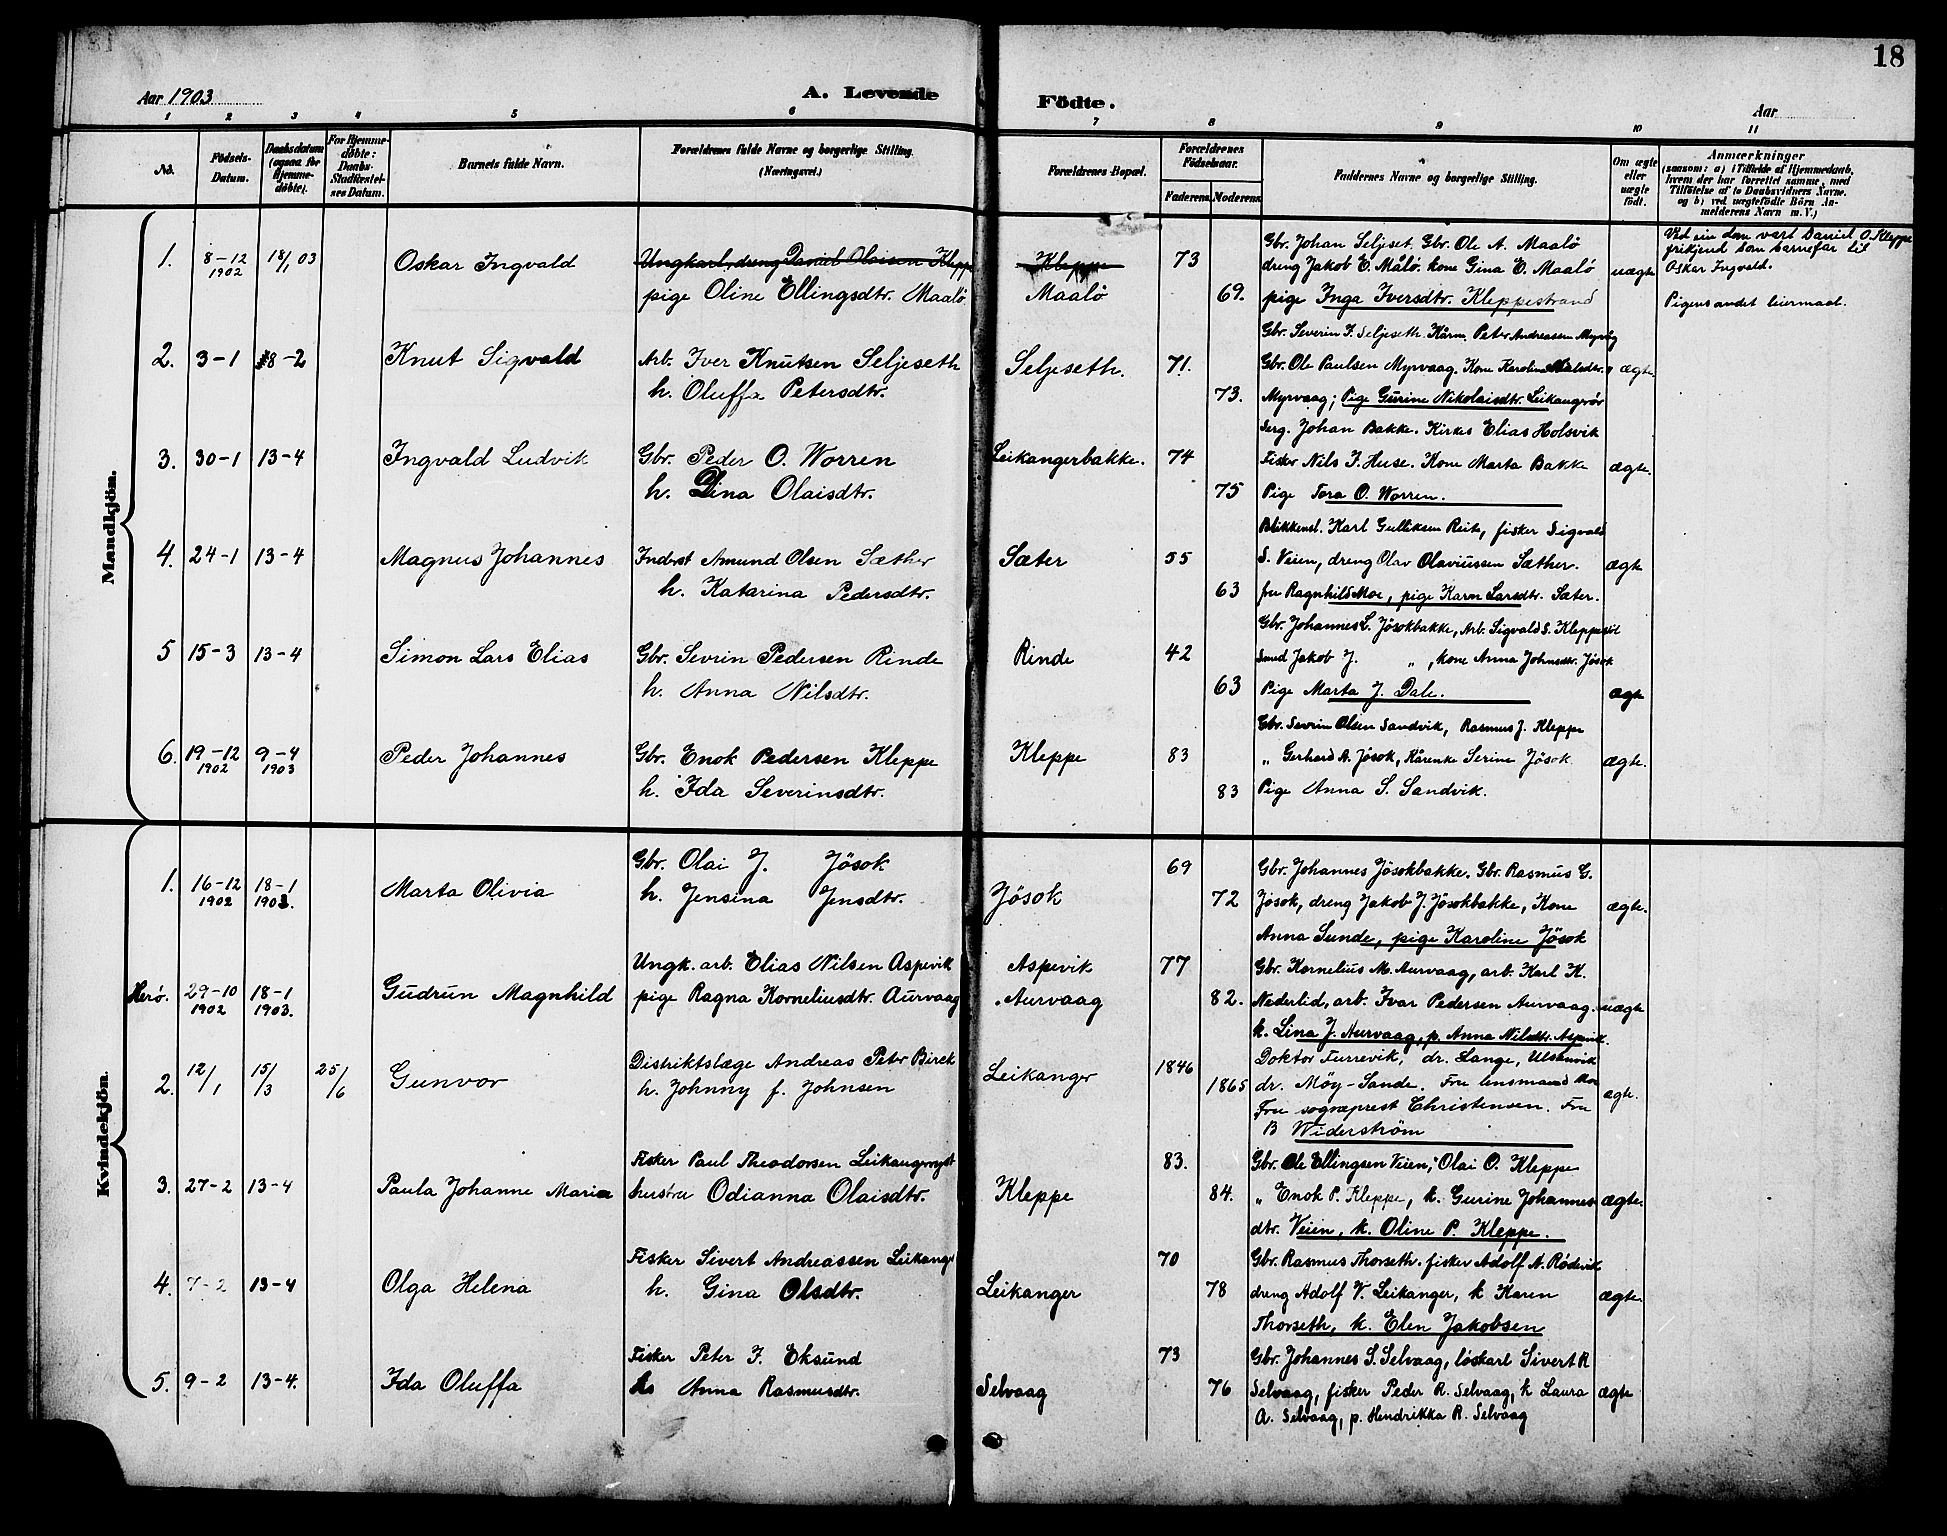 18
Aar 1903
A. Levende
Födte.
Aar
1 2 3 4 5 6 7 8 9 10 11
No.
Födsels-Datum.
Daabsdatum (ogsaa for Hjemmedöbte).
For Hjemmedöbte: Daabs-Stadfæstelses Datum.
Barnets fulde Navn.
Forældrenes fulde Navne og borgerlige Stilling. (Næringsvei.)
Forældrenes Bopæl.
Forældrenes Födselsaar.
Faderens Moderens
Faddernes Navne og borgerlige Stilling.
Om ægte eller uægte födt.
Anmærkninger
(saasom: a) i Tilfælde af Hjemmedaab, hvem der har forrettet samme, med Tilföielse af to Daabsvidners Navne. og b) ved uægtefödte Börn Anmelderens Navn m. V.)
Mandkjön.
1. 8-12 1902 18/1 03 Oskar Ingvald
Ungkarl, dreng Daniel Olaisen Kleppe Kleppe 73
pige Oline Ellingsdtr. Maalö Maalö 69.
Gbr. Johan Seljeset. Gbr. Ole A. Maalö
dreng Jakob E. Målö. kone Gina E. Maalö uægte
pige Inga Iversdtr. Kleppestrand
Ved ein dom vart Daniel O. Kleppe
frikjend som barnefar til
Oskar Ingvald.
Pigens andet leiermaal.
2. 3-1 8-2 Knut Sigvald
Arb. Iver Knutsen Seljeseth Seljeseth. 71.
h. Oluffa Petersdtr. 73.
Gbr. Severin I. Seljeseth. Kårm. Peter Andreassen Myrvåg
Gbr. Ole Paulsen Myrvaag. Kone Karoline ægte.
Myrvaag; Pige Gurine Nikolaisdtr. Leikangerör
3. 30-1 13-4 Ingvald Ludvik
Gbr. Peder O. Worren Leikangerbakke. 74
h. Dina Olaisdtr. 75
Serg. Johan Bakke. Kirkes Elias Holsvik
Fisker Nils I. Huse. Kone Marta Bakke ægte.
Pige Tora O. Worren.
4. 24-1 13-4 Magnus Johannes
Inderst Amund Olsen Sæther Sæter 55
h. Katarina Pedersdtr. 63
Blikkensl. Karl Gulliksen Reite, fisker Sigvald
S. Veien, dreng Olav Olaviussen Sæther. ægte
fru Ragnhild Moe, pige Karen Larsdtr. Sæter.
5 15-3 13-4 Simon Lars Elias
Gbr. Sevrin Pedersen Rinde Rinde 42
h. Anna Nilsdtr. 63
Gbr. Johannes L. Jösokbakke, Arb. Sigvald S. Kleppe
Smed Jakob J. „ , kone Anna Johnsdtr. Jösok
Pige Marta J. Dale. ægte
6. 19-12 1902 9-4 1903 Peder Johannes
Gbr. Enok Pedersen Kleppe Kleppe 83
h. Ida Severinsdtr. 83
Gbr. Sevrin Olsen Sandvik, Rasmus J. Kleppe
„ Gerhard A. Jösok, Kårenke Serine Jösok ægte.
Pige Anna S. Sandvik.
Kvindekjön.
1. 16-12 1902 18-1 1903. Marta Olivia
Gbr. Olai J. Jösok 69
h. Jensina Jensdtr. Jösok 72
Gbr. Johannes Jösokbakke. Gbr. Rasmus G.
Jösok, dreng Jakob J. Jösokbakke, Kone ægte.
Anna Sunde, pige Karoline Jösok
Herö. 29-10 1902 18-1 1903. Gudrun Magnhild
Ungk. arb. Elias Nilsen Aspevik Aspevik 77
pige Ragna Korneliusdtr. Aurvaag Aurvaag 82.
Gbr. Kornelius M. Aurvaag, arb. Karl K.
Nederlid, arb. Ivar Pedersen Aurvaag. uægte
k. Lina J. Aurvaag, p. Anna Nilsdtr. Aspevik.
2. 12/1 15/3 25/6 Gunvor
Distriktslæge Andreas Peter Birck Leikanger 1846
h. Johnny f. Johnsen 1865
Doktor Furrevik, dr. Lange, Ulstenvik
dr. Möy-Sande. Fru lensmand Moe ægte.
Fru sogneprest Christensen. Fru
B Widerström
3. 27-2 13-4 Paula Johanne Marie
Fisker Paul Theodorsen Leikanger 83.
hustru Odianna Olaisdtr. Kleppe 84.
Gbr. Ole Ellingsen Veien, Olai O. Kleppe
„ Enok P. Kleppe, k. Gurine Johannes ægte.
dtr. Veien, k. Oline P. Kleppe.
4. 7-2 13-4 Olga Helena
Fisker Sivert Andreassen Leikanger 70
h. Gina Olsdtr. Leikanger 78
Gbr. Rasmus Thorseth. fisker Adolf A. Rödvik
dreng Adolf V. Leikanger, k Karen ægte.
Thorseth, k. Elen Jakobsen
5. 9-2 13-4. Ida Oluffa
Fisker Peter I. Eksund 73
Anna Rasmusdtr. Selvaag 76
Gbr. Johannes S. Selvaag, löskarl Sivert R
Selvaag, fisker Peder R. Selvaag, k Laura ægte
A. Selvaag, p. Hendrikka R. Selvaag